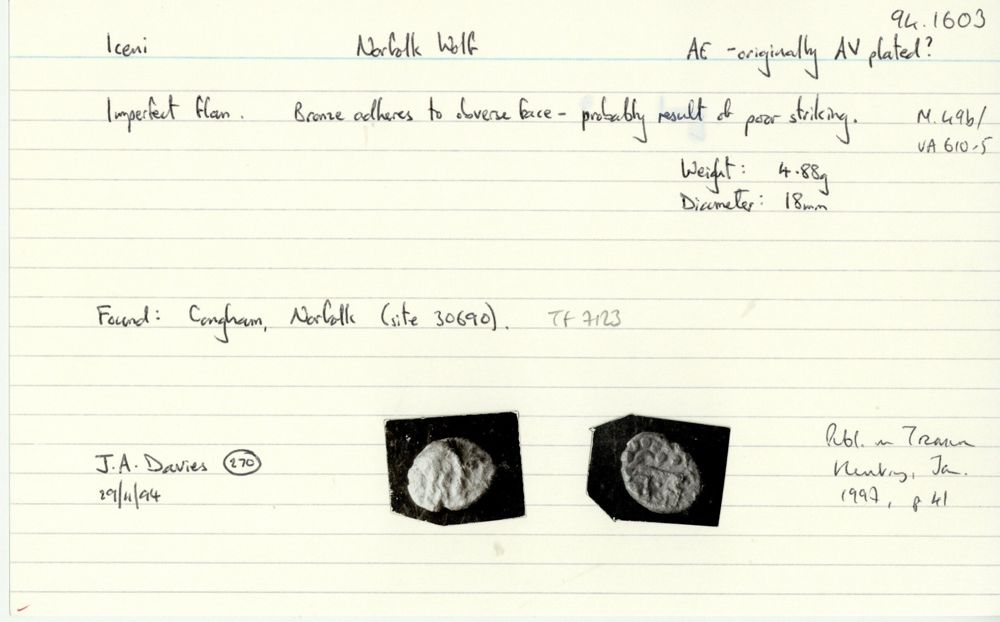 94.1603
Iceni Norfolk Wolf AE - originally AV plated?
Imperfect flan. Bronze adheres to obverse face - probably result of poor striking. M.49b/
VA 610-5
Weight: 4.88g
Diameter: 18mm
Found: Congham, Norfolk (site 30690). TF 7123
J.A. Davies 270
29/11/94
Publ. in Treasure
Hunting, Jan.
1997, p 41